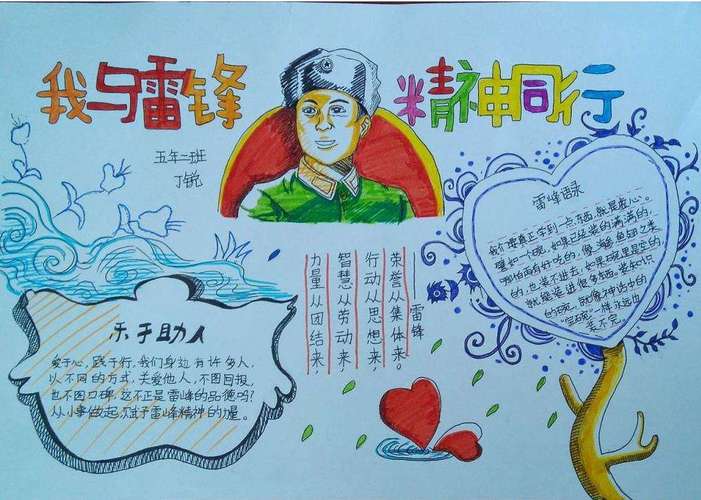 我与雷锋
精神同行
五年二班
丁锐
力量从团结来
智慧从劳动来,
行动从思想来,
荣誉从集体来。
——雷锋
雷峰语录
我们要真正学到一点东西,就是虚心。
譬如一个碗,如果已经装的满满的,
哪怕再有好吃的,像海参鱼翅之类
的,也装不进去,如果碗里是空的,
就能装进很多东西,装知识
的碗,就像神话中的
“宝碗”一样,永远也
装不完。
乐于助人
爱于心,践于行,我们身边有许多人,
以不同的方式,关爱他人,不图回报,
也不图口碑,这不正是雷峰的品德吗?
从小事做起,赋予雷峰精神的力量。